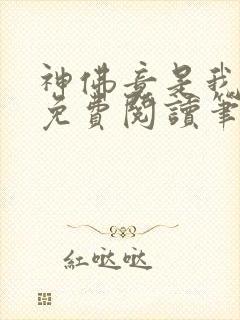 神佛竟是我
免費閱讀筆
紅哒哒